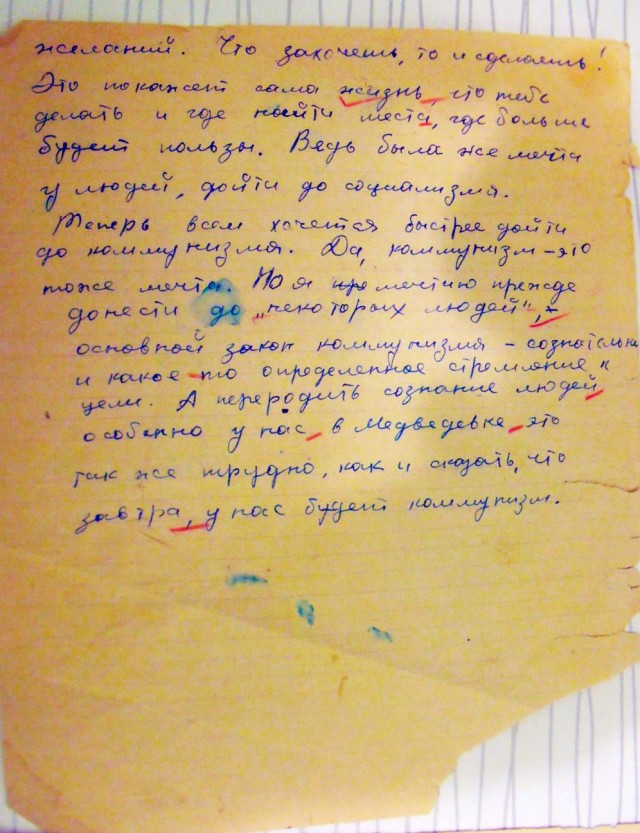 желаний. Что захочешь, то и сделаешь!
Это покажет сама жизнь, что тебе
делать и где найти места, где больше
будет пользы. Ведь была же мечта
у людей, дойти до социализма.
Теперь всем хочется быстрее дойти
до коммунизма. Да, коммунизм – это
тоже мечта. Но я мечтаю прежде
донести до „некоторых людей",
основной закон коммунизма – сознательно
и какое-то определенное стремление к
цели. А переродить сознание людей,
особенно у нас, в Медведевке, это
так же трудно, как и сказать, что
завтра, у нас будет коммунизм.